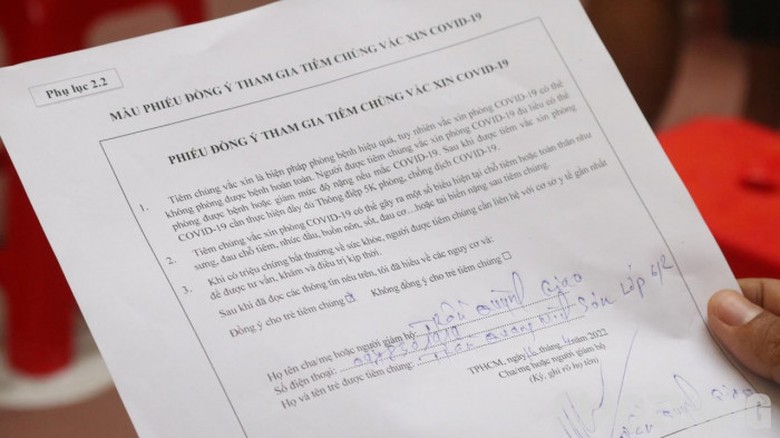 Phụ lục 2.2
MẪU PHIẾU ĐỒNG Ý THAM GIA TIÊM CHỦNG VẮC XIN COVID-19
PHIẾU ĐỒNG Ý THAM GIA TIÊM CHỦNG VẮC XIN COVID-19
1. Tiêm chủng vắc xin là biện pháp phòng bệnh hiệu quả, tuy nhiên vắc xin phòng COVID-19 có thể
không phòng được bệnh hoàn toàn. Người được tiêm chủng vắc xin phòng COVID-19 đủ liều có thể
phòng được bệnh hoặc giảm mức độ nặng nếu mắc COVID-19. Sau khi được tiêm vắc xin phòng
COVID-19 cần thực hiện đầy đủ Thông điệp 5K phòng, chống dịch COVID-19.
2. Tiêm chủng vắc xin phòng COVID-19 có thể gây ra một số biểu hiện tại chỗ tiêm hoặc toàn thân như
sưng, đau chỗ tiêm, nhức đầu, buồn nôn, sốt, đau cơ…hoặc tai biến nặng sau tiêm chủng.
3. Khi có triệu chứng bất thường về sức khỏe, người được tiêm chủng cần liên hệ với cơ sở y tế gần nhất
để được tư vấn, khám và điều trị kịp thời.
Sau khi đã đọc các thông tin nêu trên, tôi đã hiểu về các nguy cơ và:
Đồng ý cho trẻ tiêm chủng Không đồng ý cho trẻ tiêm chủng
Họ tên cha/mẹ hoặc người giám hộ: Quỳnh Giao
Số điện thoại:
Họ và tên trẻ được tiêm chủng: Sơn Lớp 6/2
TPHCM, ngày 16 tháng 4 năm 2022
Cha/mẹ hoặc người giám hộ
(Ký, ghi rõ họ tên)
Quỳnh Giao